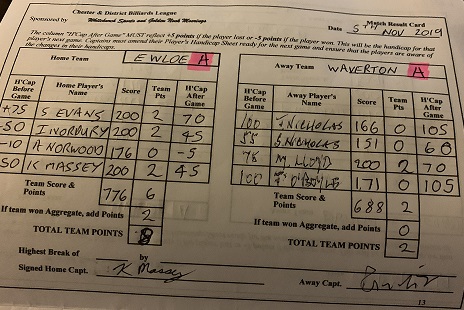 Chester & District Billiards League
Match Result Card
Sponsored by Whitehead Sports and
Date 5TH NOV 2019
The column "H'Cap After Game" MUST reflect +5 points if the player lost or -5 points if the player won. This will be the handicap for that
player's next game. Captains must amend their Player's Handicap Sheet ready for the next game and ensure that the players are aware of
the changes in their handicaps.
Home Team EWLOE A
Away Team WAVERTON A
H'Cap Before Game Home Player's Name Score Team Pts H'Cap After Game
+75 S EVANS 200 2 70
50 I NORBURY 200 2 45
-10 A NORWOOD 176 0 -5
50 K MASSEY 200 2 45
Team Score & Points 776 6
If team won Aggregate, add Points 2
TOTAL TEAM POINTS 8
Highest Break of by
Signed Home Capt. K Massey
H'Cap Before Game Away Player's Name Score Team Pts H'Cap After Game
100 J. NICHOLAS 166 0 105
55 S NICHOLAS 151 0 60
75 M LLOYD 200 2 70
100 171 0 105
Team Score & Points 688 2
If team won Aggregate, add Points 0
TOTAL TEAM POINTS 2
Away Capt.
13